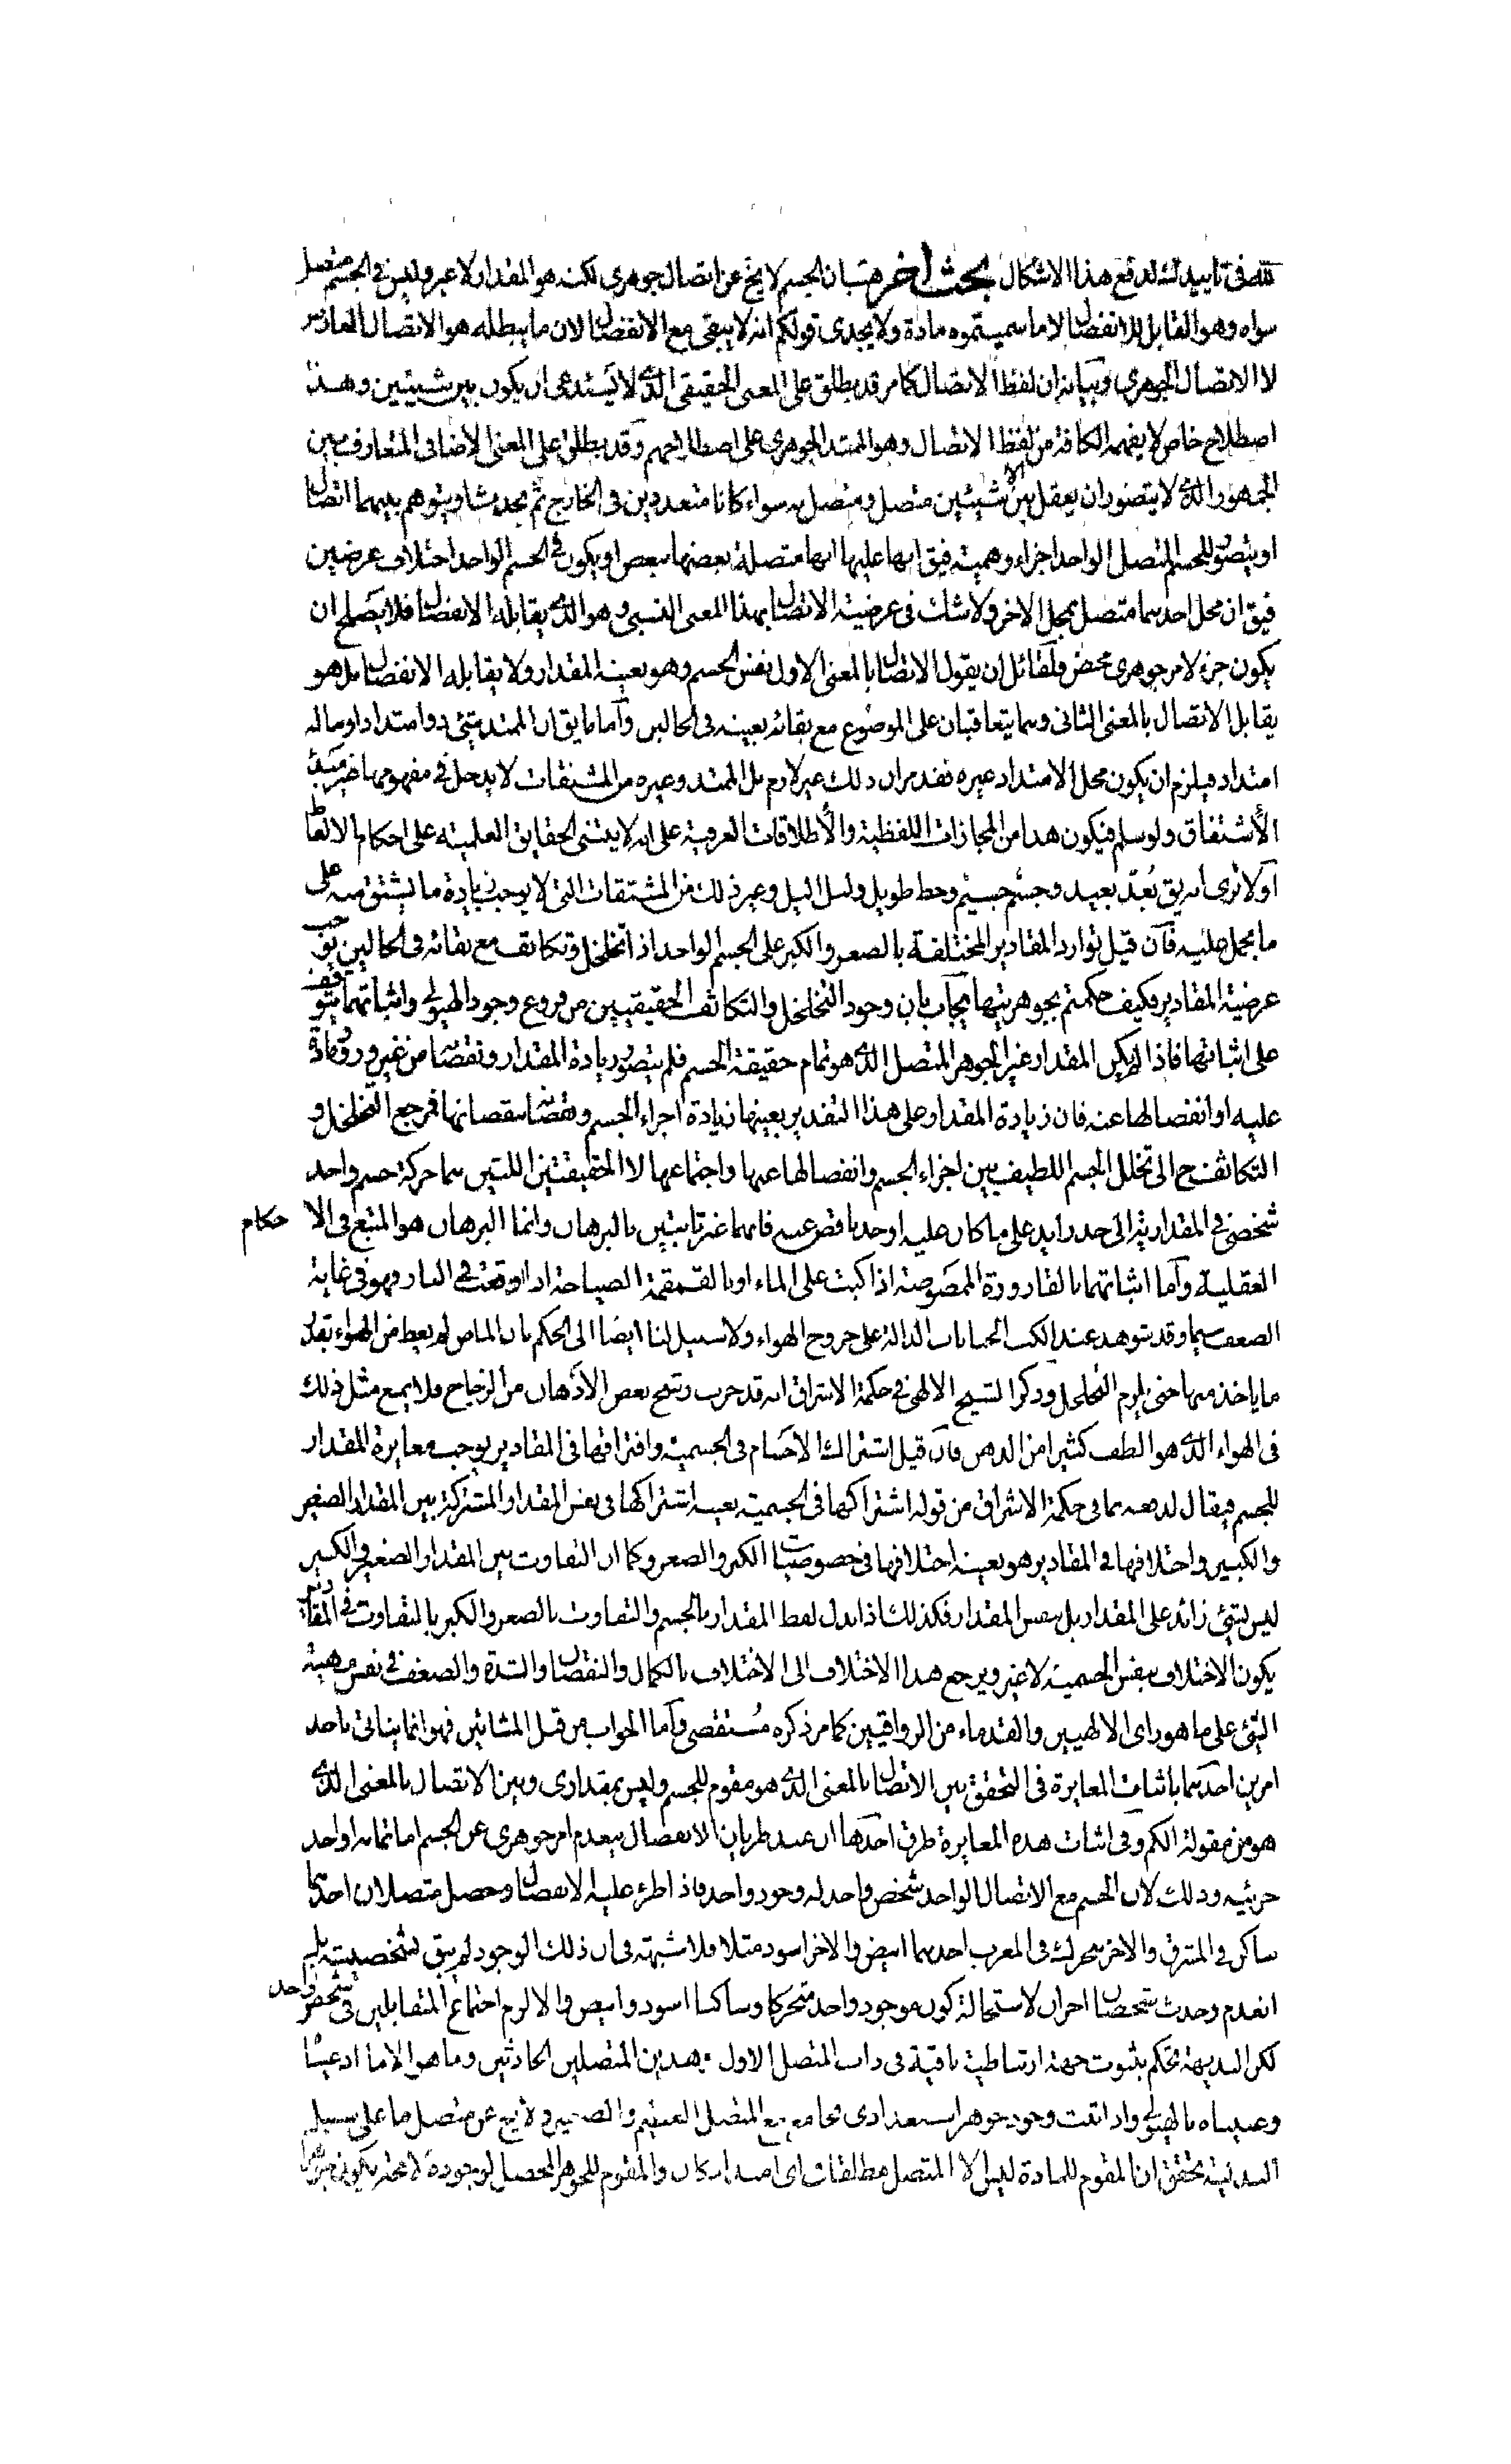 لله فى تاييد لك لدفع هذا الاشكال بحث اخر هب ان الجسم لا يخ عن اتصال جوهرى لكنه هو المقدار لا غير وليس فى الجسم متصل
سواه وهو القابل للانفصال لا ما سميتموه مادة ولا يجدى قولكم انه لا يبقى مع الانفصال لان ما يبطله هو الاتصال العارض
لا الاتصال الجوهرى وبيانه ان لفظ الاتصال كما مر قد يطلق على المعنى الحقيقى الذى لا يستدعى ان يكون بين شيئين وهذا
اصطلاح خاص لا يفهمه الكافة من لفظ الاتصال وهو الممتد الجوهرى على اصطلاحهم وقد يطلق على المعنى الاضافى المتعارف بين
الجمهور الذى لا يتصور ان يعقل الا بين شيئين متصل ومتصل به سواء كانا متعددين فى الخارج ثم يحدث او يتوهم بينهما اتصال
او يتصور للجسم المتصل الواحد اجزاء وهمية فيق عليها انها متصلة بعضها ببعض او يكون فى الجسم الواحد اختلاف عرضين
فيق ان محل احدهما متصل بمحل الاخر ولا شك فى عرضية الاتصال بهذا المعنى النسبى وهو الذى يقابله الانفصال فلا يصلح ان
يكون جزء لامر جوهرى محض ولقائل ان يقول الاتصال بالمعنى الاول نفس الجسم وهو بعينه المقدار ولا يقابله الانفصال بل هو
يقابل الاتصال بالمعنى الثانى وهما يتعاقبان على الموضوع مع بقائه بعينه فى الحالين واما ما يق ان الممتد شئ ذو امتداد او ما له
امتداد فيلزم ان يكون محل الامتداد غيره فقد مر ان ذلك غير لازم بل الممتد وغيره من المشتقات لا يدخل فى مفهومها غير مبدء
الاشتقاق ولو سلم فيكون هذا من المجازات اللفظية والاطلاقات العرفية على انه لا يبتنى الحقايق العلمية على احكام الالفاظ
اولا ترى انه يق بُعد بعيد وجسم جسيم وخط طويل وليل اليل وغير ذلك من المشتقات التى لا يوجب زيادة ما يشتق منه على
ما يحمل عليه فان قيل توارد المقادير المختلفة بالصغر والكبر على الجسم الواحد اذا تخلخل وتكاثف مع بقائه فى الحالين يوجب
عرضية المقادير فكيف حكمتم بجوهريتها يجاب بان وجود التخلخل والتكاثف الحقيقيين من فروع وجود الهيولى واثباتهما يتوقف
على اثباتها فاذا لم يكن المقدار غير الجوهر المتصل الذى هو تمام حقيقة الجسم فلم يتصور زيادة المقدار ونقصانه من غير ورود مادة
عليه او انفصالها عنه فان زيادة المقدار على هذا التقدير بعينها زيادة اجزاء الجسم ونقصانه نقصانها فرجع التخلخل و
التكاثف ح الى تخلل الجسم اللطيف بين اجزاء الجسم وانفصالها عنها واجتماعها لا الحقيقتين اللتين هما حركة جسم واحد
شخصى فى المقدارية الى حد زايد على ما كان عليه او حد ناقص عنه فانهما غير ثابتين بالبرهان وانما البرهان هو المتبع فى الاحكام
العقلية واما اثباتهما بالقارورة الممصوصة اذا كبت على الماء او بالقمقمة الصياحة اذا وقعت فى النار فهو فى غاية
الضعف سيما وقد يشوهد عند الكب الحبابات الدالة على خروج الهواء ولا سبيل لنا ايضا الى الحكم بان الماص لم يعط من الهواء بقدر
ما ياخذ منها حتى يلزم التخلخل وذكر الشيخ الالهى فى حكمة الاشراق انه قد جرب رشح بعض الادهان من الزجاج فلا يمنع مثل ذلك
فى الهواء الذى هو الطف كثيرا من الدهن فان قيل اشتراك الاجسام فى الجسمية وافتراقها فى المقادير يوجب مغايرة المقدار
للجسم فيقال لدفعه بما فى حكمة الاشراق من قوله اشتراكها فى الجسمية بعينه اشتراكها فى نفس المقدار المشتركة بين المقدار الصغير
والكبير واختلافها فى المقادير هو بعينه اختلافها فى خصوصيات الكبر والصغر وكما ان التفاوت بين المقدار الصغير والكبير
ليس بشئ زائد على المقدار بل بنفس المقدار فكذلك اذا بدل لفظ المقدار بالجسم والتفاوت بالصغر والكبر بالتفاوت فى المقادير
يكون الاختلاف بنفس الجسمية لا غير ويرجع هذا الاختلاف الى الاختلاف بالكمال والنقصان والشدة والضعف فى نفس مهية
الشئ على ما هو راى الالهيين والقدماء من الرواقيين كما مر ذكره مُستقصى واما الجواب من قبل المشائين فهو انما يتاتى باحد
امرين احدهما باثبات المغايرة فى التحقق بين الاتصال بالمعنى الذى هو مقوم للجسم وليس بمقدارى وبين الاتصال بالمعنى الذى
هو من مقولة الكم وفى اثبات هذه المغايرة طرق احدها ان عند طريان الانفصال ينعدم امر جوهرى عن الجسم اما تمامه او احد
جزئيه وذلك لان الجسم مع الاتصال الواحد شخص واحد له وجود واحد فاذا طرء عليه الانفصال وحصل متصلان احدهما
ساكن فى المشرق والاخر متحرك فى المغرب احدهما ابيض والاخر اسود مثلا فلا شبهة فى ان ذلك الوجود لم يبق بشخصيته بل
انعدم وحدث شخصان اخران لاستحالة كون موجود واحد متحركا وساكنا اسود وابيض والا لزم اجتماع المتقابلين فى شخص واحد
لكن البديهة تحكم بثبوت جهة ارتباطية باقية فى ذات المتصل الاول بهذين المتصلين الحادثين وما هو الا ما ادعيناه
وعنيناه بالهيولى واذا ثبت وجود جوهر استعدادى مجامع مع المتصل العظيم والصغير ولا يخ عن متصل ما على سبيل
البدلية تحقق ان المقوم للمادة ليس الا المتصل مطلقا اى امتداد كان والمقوم للجوهر المحصل لوجوده لا محة يكون جوهرا